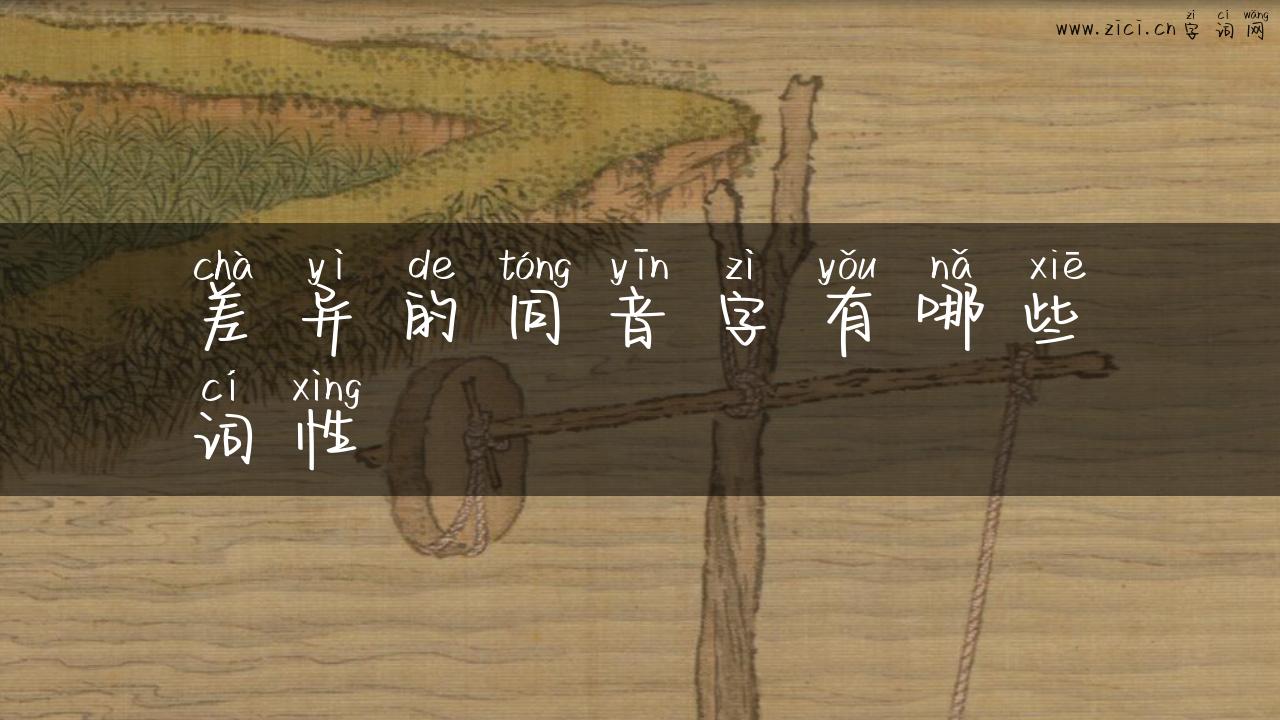 zì cí wǎng
www.zici.cn字词网
chà yì de tóng yīn zì yǒu nǎ xiē
差异的同音字有哪些
cí xìng
词性